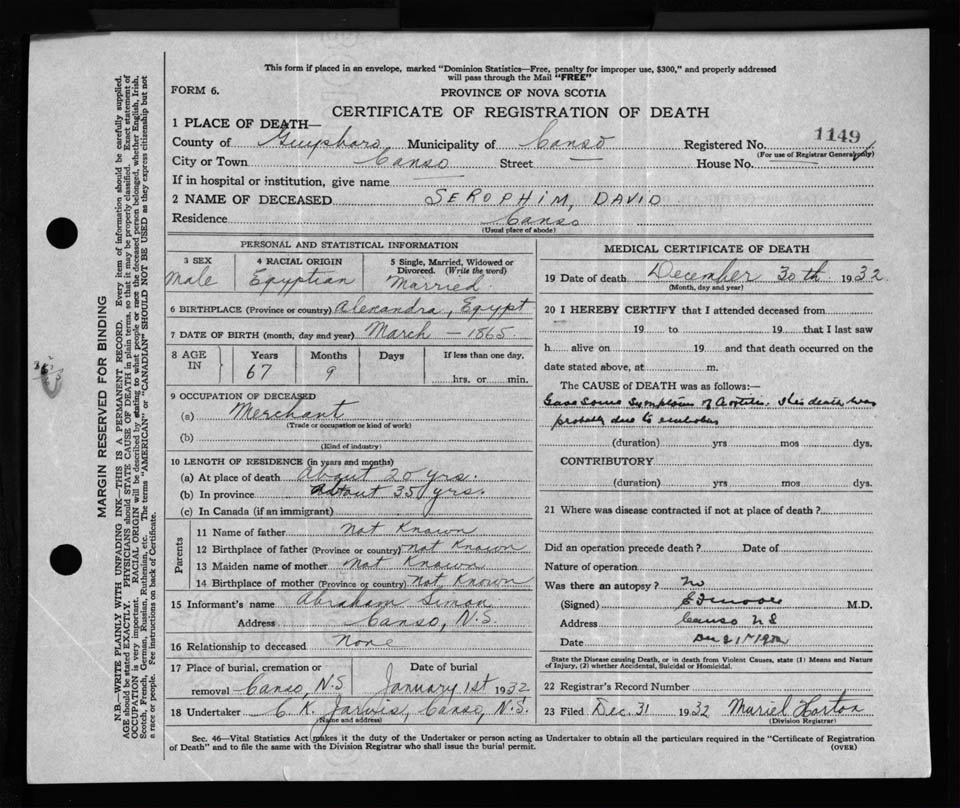 This form if placed in an envelope, marked "Dominion Statistics—Free, penalty for improper use, $300," and properly addressed
will pass through the Mail "FREE"
FORM 6. PROVINCE OF NOVA SCOTIA
CERTIFICATE OF REGISTRATION OF DEATH
1149
1 PLACE OF DEATH—
County of Municipality of Canso Registered No.
(For use of Registrar General only)
City or Town Canso Street — House No. —
If in hospital or institution, give name —
2 NAME OF DECEASED SEROPHIM, DAVID
Residence Canso
(Usual place of abode)
PERSONAL AND STATISTICAL INFORMATION
3 SEX 4 RACIAL ORIGIN 5 Single, Married, Widowed or
Divorced. (Write the word)
Male Egyptian Married.
6 BIRTHPLACE (Province or country) Alexandra, Egypt
7 DATE OF BIRTH (month, day and year) March — 1865.
8 AGE IN Years Months Days If less than one day,
67 9 hrs. or min.
9 OCCUPATION OF DECEASED
(a) Merchant
(Trade or occupation or kind of work)
(b)
(Kind of industry)
10 LENGTH OF RESIDENCE (in years and months)
(a) At place of death About 20 yrs.
(b) In province About 35 yrs.
(c) In Canada (if an immigrant)
Parents
11 Name of father Not Known
12 Birthplace of father (Province or country) Not Known
13 Maiden name of mother Not Known
14 Birthplace of mother (Province or country) Not Known
15 Informant's name Abraham Simon
Address Canso, N.S.
16 Relationship to deceased None
17 Place of burial, cremation or Date of burial
removal Canso, N.S January 1st 1932
18 Undertaker C.K. Jarvis, Canso, N.S.
(Name and address)
MEDICAL CERTIFICATE OF DEATH
19 Date of death December 30th 1932
(Month, day and year)
20 I HEREBY CERTIFY that I attended deceased from
19 to 19 that I last saw
h alive on 19 and that death occurred on the
date stated above, at m.
The CAUSE OF DEATH was as follows:—
Gave some symptoms of This death was
due to embolus
(duration) yrs mos dys.
CONTRIBUTORY
(duration) yrs mos dys.
21 Where was disease contracted if not at place of death?
Did an operation precede death? Date of
Nature of operation
Was there an autopsy? No
(Signed) M.D.
Address Canso N S
Date
State the Disease causing Death, or in death from Violent Causes, state (1) Means and Nature
of Injury, (2) whether Accidental, Suicidal or Homicidal.
22 Registrar's Record Number
23 Filed Dec. 31 1932 Muriel Horton
(Division Registrar)
Sec. 46—Vital Statistics Act makes it the duty of the Undertaker or person acting as Undertaker to obtain all the particulars required in the "Certificate of Registration
of Death" and to file the same with the Division Registrar who shall issue the burial permit. (OVER)
MARGIN RESERVED FOR BINDING
N.B.—WRITE PLAINLY WITH UNFADING INK—THIS IS A PERMANENT RECORD. Every item of information should be carefully supplied.
AGE should be stated EXACTLY. PHYSICIANS should STATE CAUSE OF DEATH in plain terms, so that it may be properly classified. Exact statement of
OCCUPATION is very important. RACIAL ORIGIN will be described by stating to what people or race the deceased person belonged, whether English, Irish,
Scotch, French, German, Russian, Ruthenian, etc. The terms "AMERICAN" or "CANADIAN" SHOULD NOT BE USED as they express citizenship but not
a race or people. See instructions on back of Certificate.